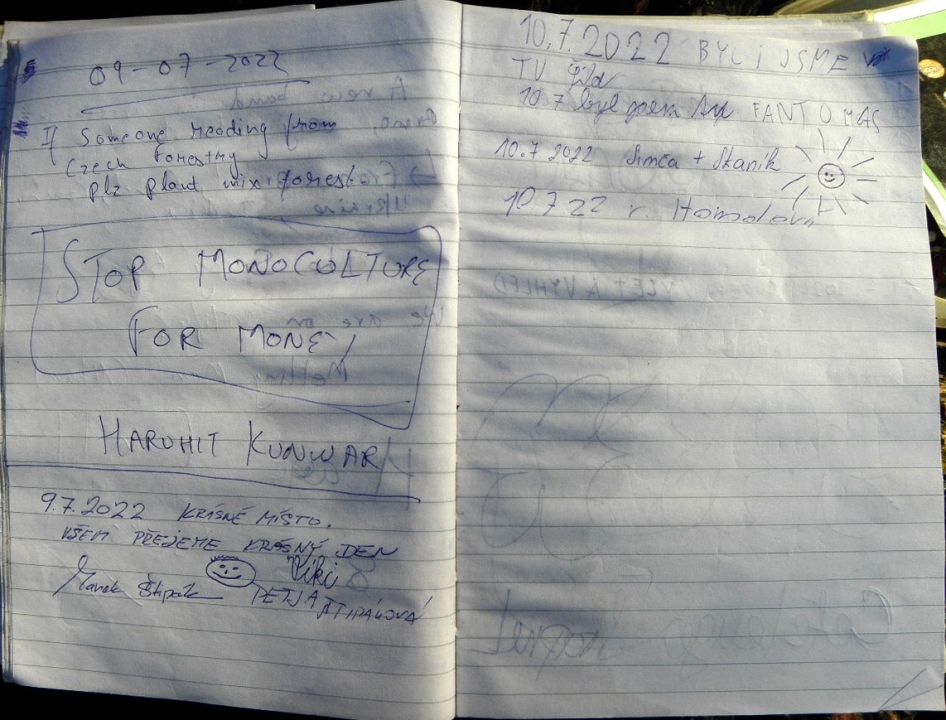 09-07-2022
If Someone reading from
Czech Forestry
plz plant mix forest
STOP MONOCULTURE
FOR MONEY
HARUHIT KUNWAR
9.7.2022 KRÁSNÉ MÍSTO.
VŠEM PŘEJEME KRÁSNÝ DEN
Viki
Marek Štipák
ŠTIPÁKOVÁ
10.7.2022 BYLI JSME
TU
10.7 byl jsem tu FANTOMAS
10.7 2022 Simča + Skaník
10.7 22 r. Homolovi